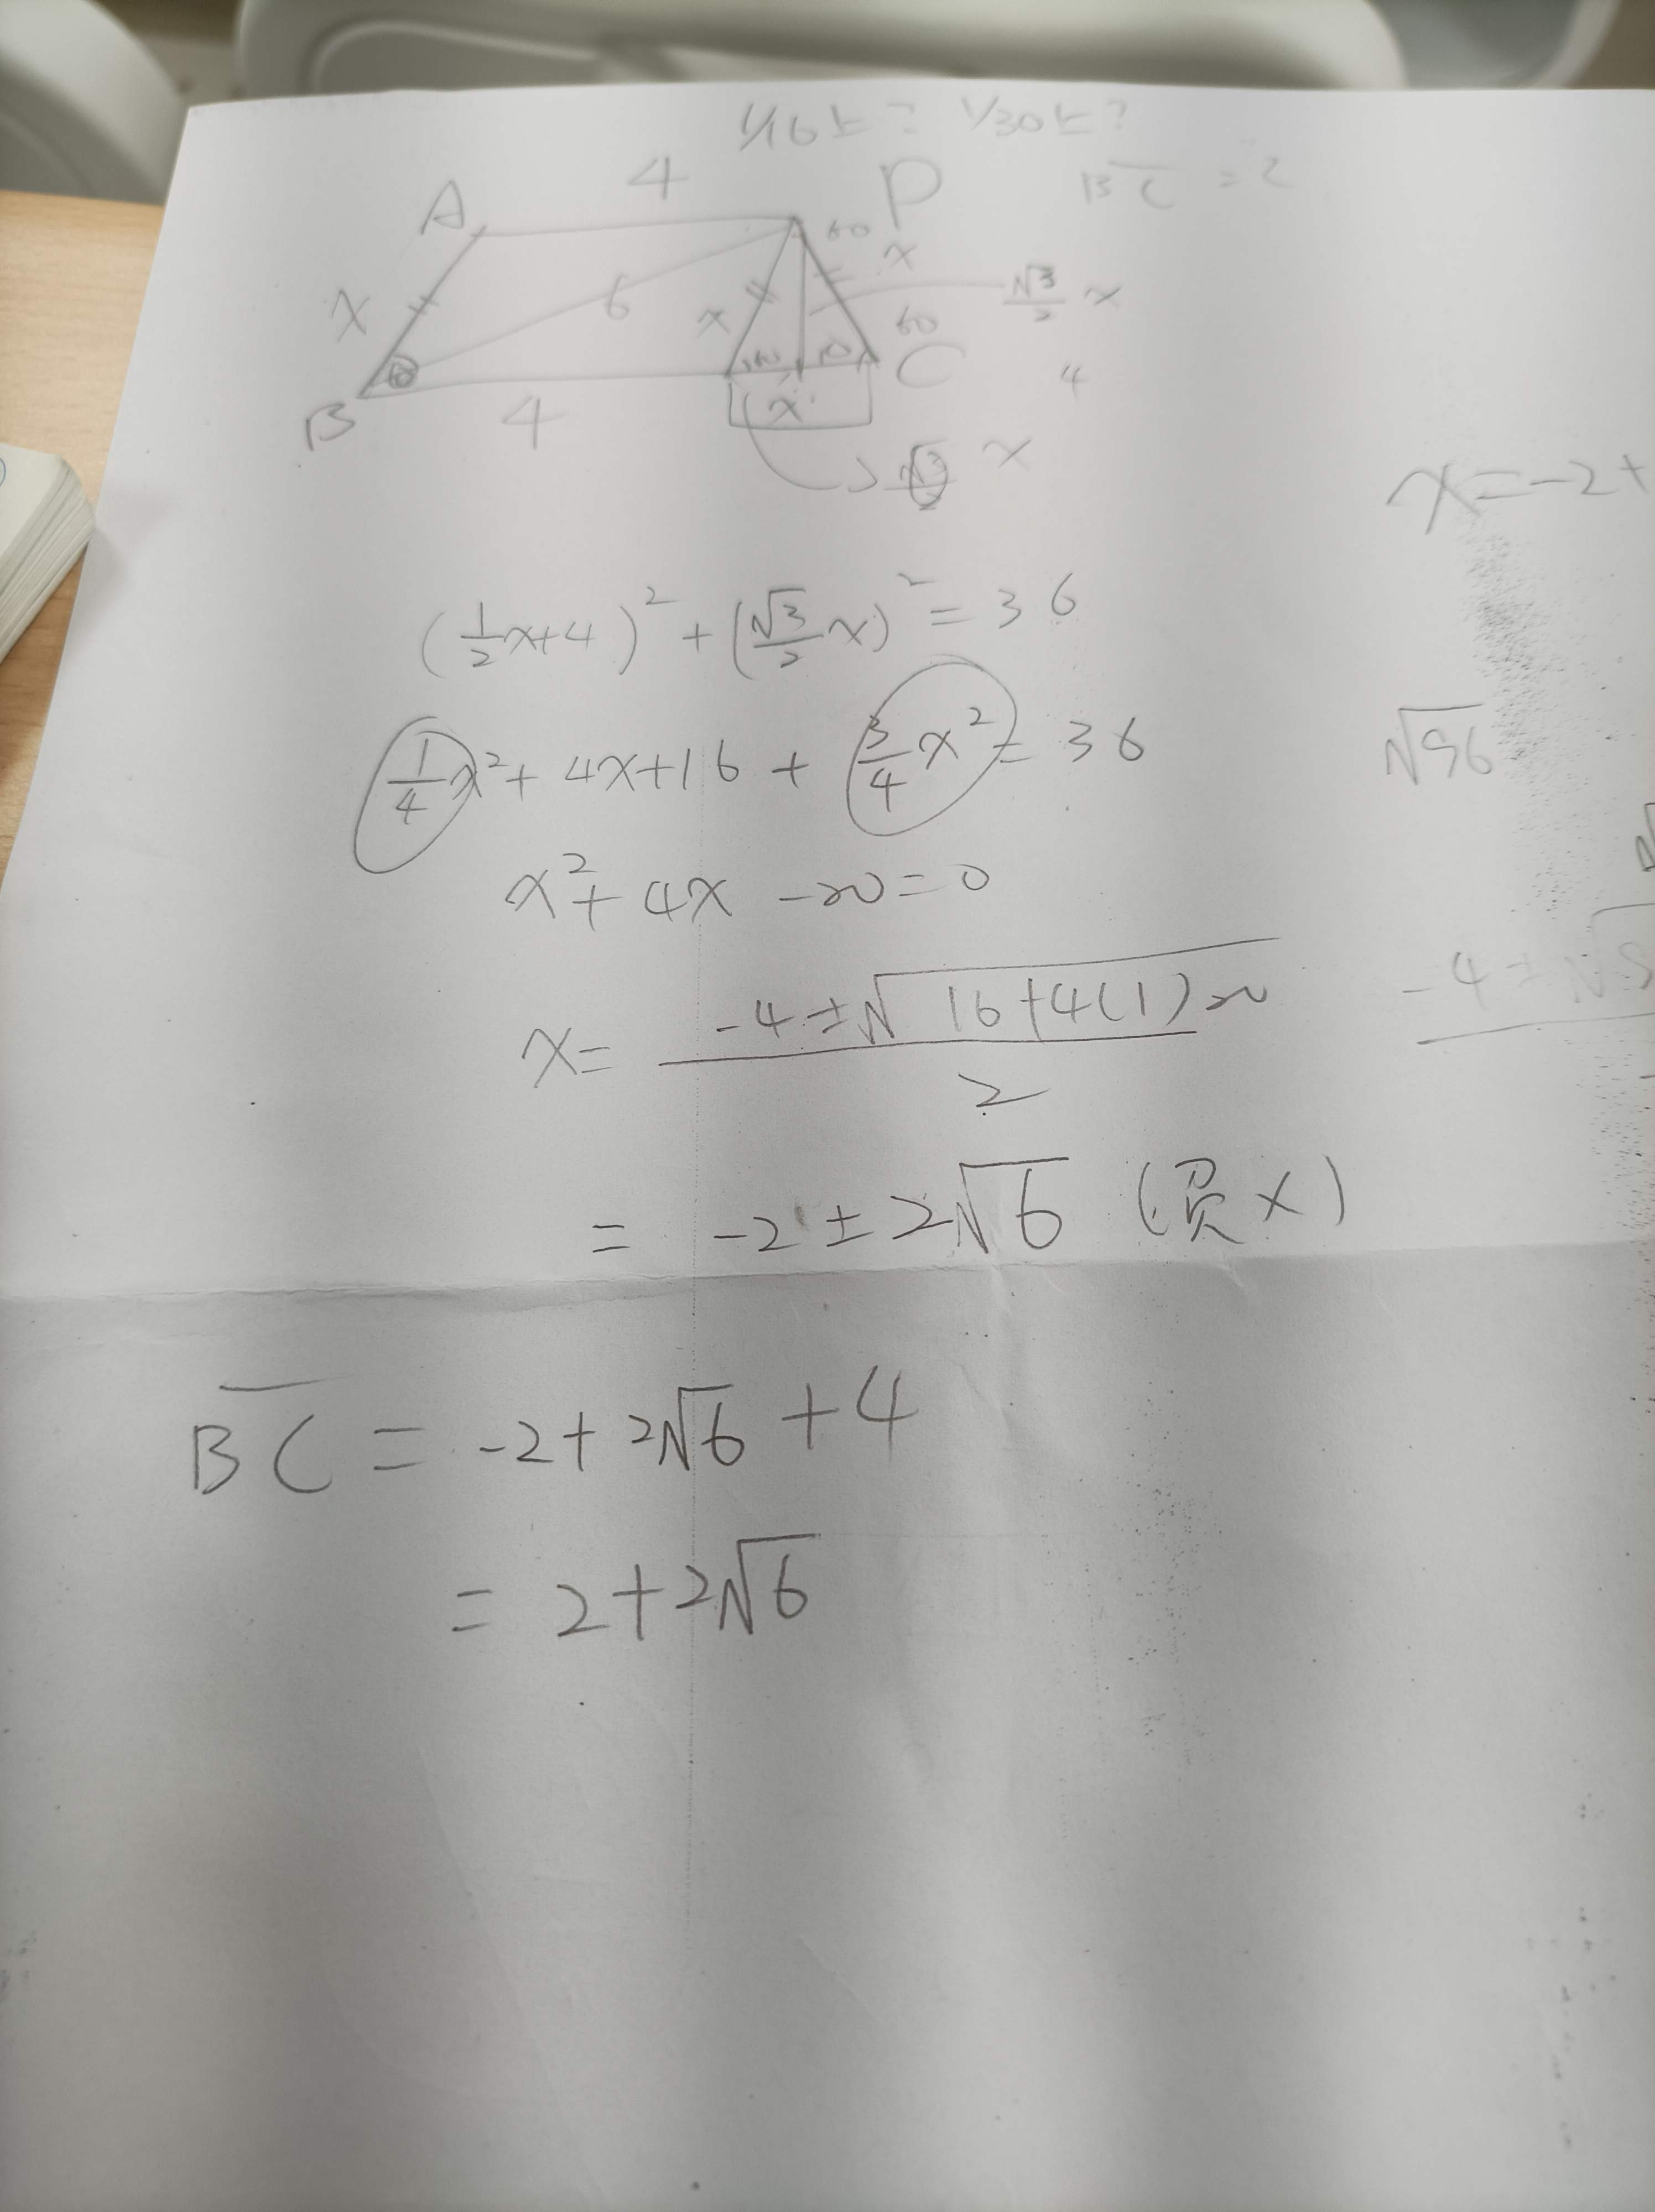 1/16上? 1/30上?
4
P
BC = ?
A
60
x
x
6
x
√3/2 x
60
B
4
x
C
4
x
x = -2 +
(1/2 x+4)² + (√3/2 x)² = 36
1/4 x² + 4x+16 + 3/4 x² = 36
√96
x² + 4x - 20 = 0
x = (-4 ± √(16+4(1)20)) / 2
-4 ± √9
= -2 ± 2√6 (负x)
BC = -2 + 2√6 + 4
= 2 + 2√6